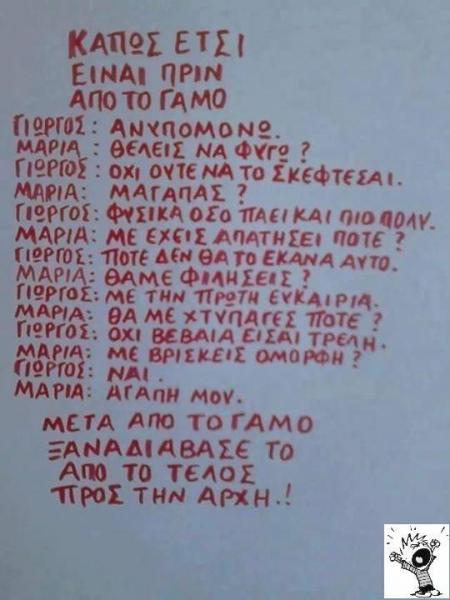 ΚΑΠΩΣ ΕΤΣΙ
ΕΙΝΑΙ ΠΡΙΝ
ΑΠΟ ΤΟ ΓΑΜΟ
ΓΙΩΡΓΟΣ: ΑΝΥΠΟΜΟΝΩ.
ΜΑΡΙΑ: ΘΕΛΕΙΣ ΝΑ ΦΥΓΩ?
ΓΙΩΡΓΟΣ: ΟΧΙ ΟΥΤΕ ΝΑ ΤΟ ΣΚΕΦΤΕΣΑΙ.
ΜΑΡΙΑ: ΜΑΓΑΠΑΣ?
ΓΙΩΡΓΟΣ: ΦΥΣΙΚΑ ΟΣΟ ΠΑΕΙ ΚΑΙ ΠΙΟ ΠΟΛΥ.
ΜΑΡΙΑ: ΜΕ ΕΧΕΙΣ ΑΠΑΤΗΣΕΙ ΠΟΤΕ?
ΓΙΩΡΓΟΣ: ΠΟΤΕ ΔΕΝ ΘΑ ΤΟ ΕΚΑΝΑ ΑΥΤΟ.
ΜΑΡΙΑ: ΘΑ ΜΕ ΦΙΛΗΣΕΙΣ?
ΓΙΩΡΓΟΣ: ΜΕ ΤΗΝ ΠΡΩΤΗ ΕΥΚΑΙΡΙΑ.
ΜΑΡΙΑ: ΘΑ ΜΕ ΧΤΥΠΑΓΕΣ ΠΟΤΕ?
ΓΙΩΡΓΟΣ: ΟΧΙ ΒΕΒΑΙΑ ΕΙΣΑΙ ΤΡΕΛΗ.
ΜΑΡΙΑ: ΜΕ ΒΡΙΣΚΕΙΣ ΟΜΟΡΦΗ?
ΓΙΩΡΓΟΣ: ΝΑΙ.
ΜΑΡΙΑ: ΑΓΑΠΗ ΜΟΥ.
ΜΕΤΑ ΑΠΟ ΤΟ ΓΑΜΟ
ΞΑΝΑΔΙΑΒΑΣΕ ΤΟ
ΑΠΟ ΤΟ ΤΕΛΟΣ
ΠΡΟΣ ΤΗΝ ΑΡΧΗ.!